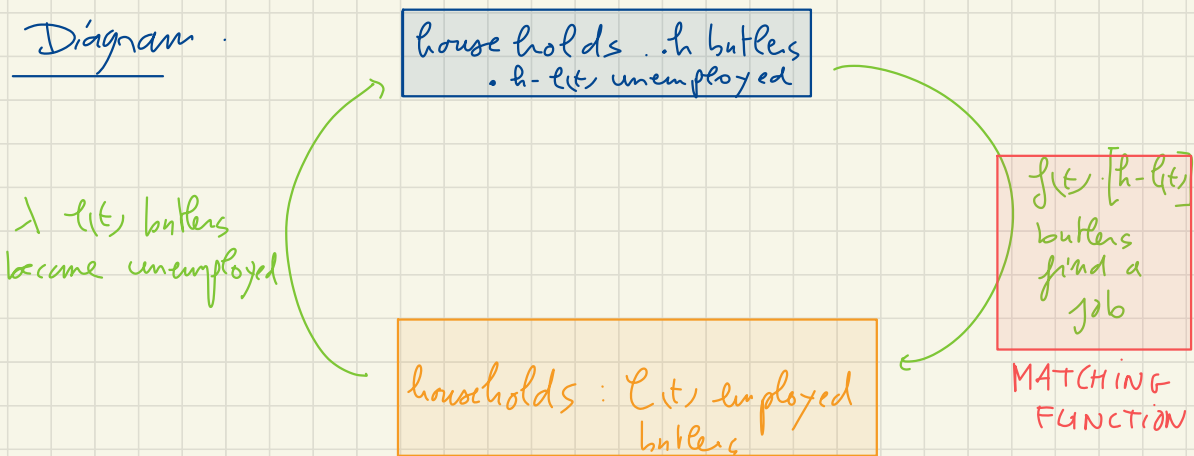 Diagram.
households : h butlers
• h - l(t) unemployed
λ l(t) butlers
become unemployed
f(t) · [h - l(t)]
butlers
find a
job
MATCHING
FUNCTION
households : l(t) employed
butlers